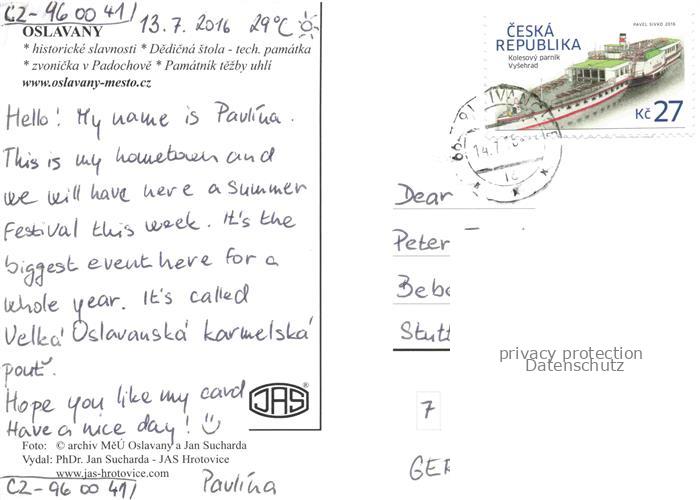 CZ-960041/
13.7.2016 29°C
OSLAVANY
* historické slavnosti * Dědičná štola - tech. památka
* zvonička v Padochově * Památník těžby uhlí
www.oslavany-mesto.cz
Hello! My name is Pavlína.
This is my hometown and
we will have here a summer
Festival this week. It's the
biggest event here for a
whole year. It's called
Velká Oslavanská karmelská
pouť.
Hope you like my card
Have a nice day!
JAS
Foto: © archiv MěÚ Oslavany a Jan Sucharda
Vydal: PhDr. Jan Sucharda - JAS Hrotovice
www.jas-hrotovice.com
CZ-960041/
Pavlína
PAVEL SIVKO 2016
ČESKÁ
REPUBLIKA
Kolesový parník
Vyšehrad
Kč 27
Dear
Peter
Bebe
Stutt
privacy protection
Datenschutz
7
GER